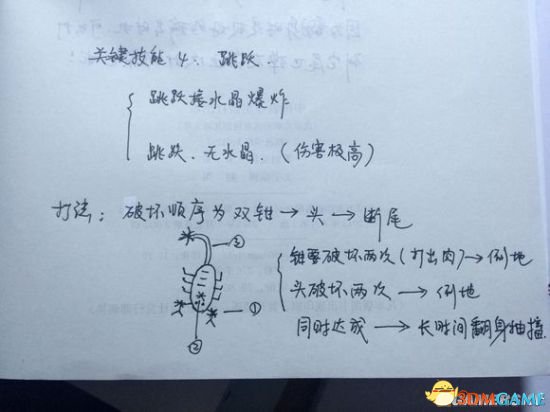 关键技能4、跳跃.
跳跃接水晶爆炸
跳跃、无水晶.（伤害极高）
打法：破坏顺序为双钳→头→断尾
③
钳要破坏两次（打出肉）→倒地
头破坏两次→倒地
①
同时达成→长时间翻身抽搐
②
3DMGAME